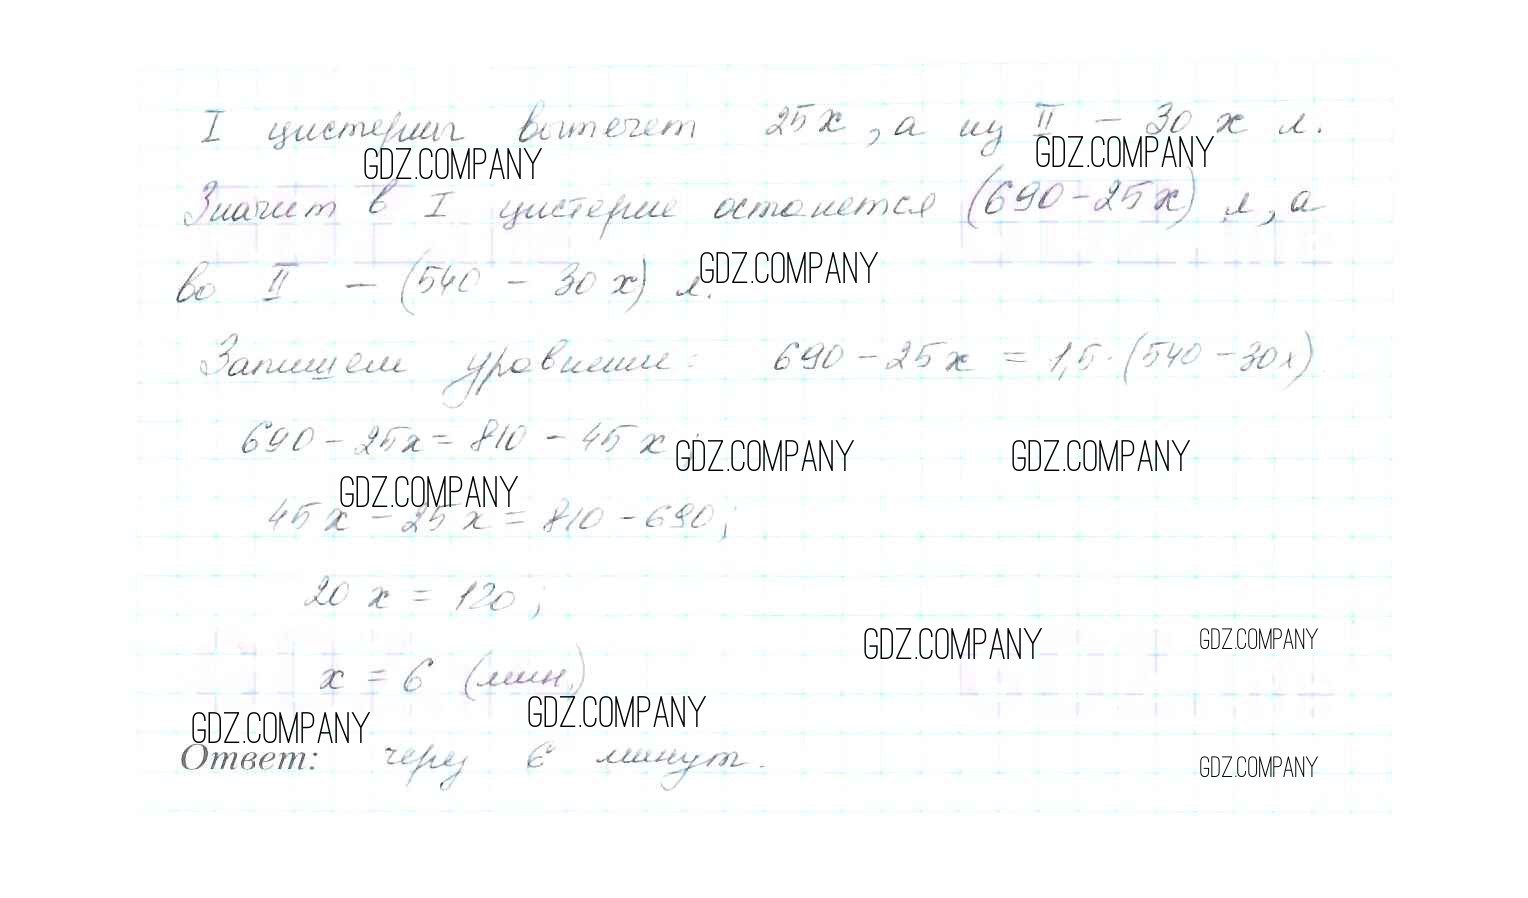 I цистерны вытечет 25x, а из II – 30x л.
GDZ.COMPANY GDZ.COMPANY
Значит в I цистерне останется (690-25x) л, а
GDZ.COMPANY
во II – (540 – 30x) л.
Запишем уравнение: 690-25x = 1,5·(540-30x)
690-25x=810-45x;
GDZ.COMPANY GDZ.COMPANY
GDZ.COMPANY
45x-25x=810-690;
20x=120;
GDZ.COMPANY GDZ.COMPANY
x=6 (мин.)
GDZ.COMPANY GDZ.COMPANY
Ответ: через 6 минут.
GDZ.COMPANY